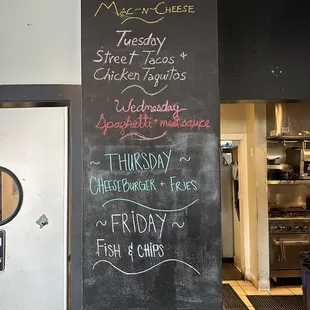 Mac-n-Cheese
Tuesday
Street Tacos +
Chicken Taquitos
Wednesday
Spaghetti + meat sauce
~ THURSDAY ~
CHEESEBURGER + FRIES
~ FRIDAY ~
FISH & CHIPS